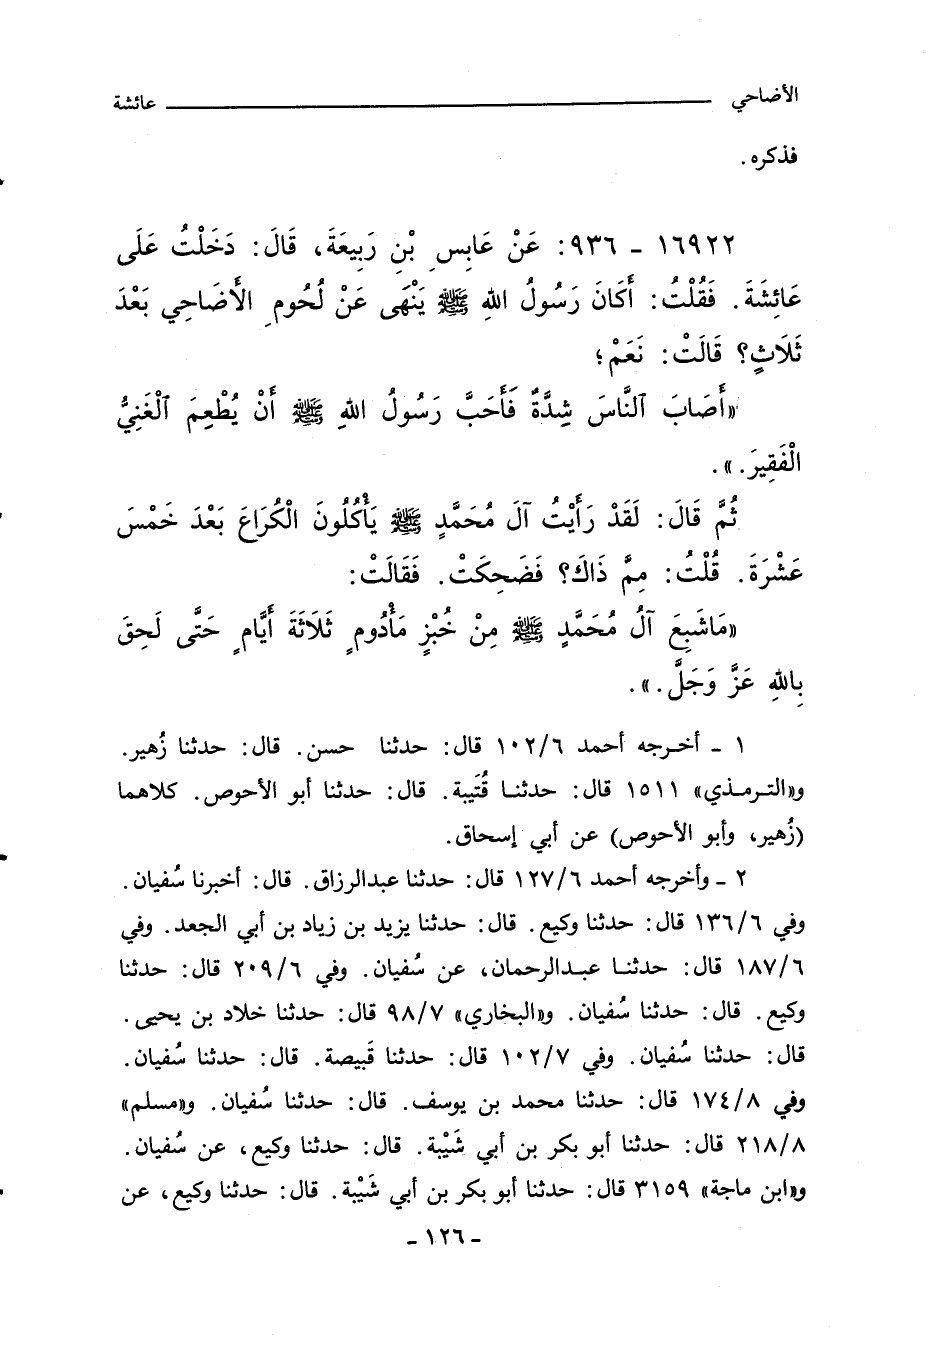 الأضاحي ــــــــــــــــــــ عائشة
فذكره .
١٦٩٢٢ ـ ٩٣٦: عَنْ عَابِسِ بْنِ رَبِيعَةَ، قَالَ: دَخَلْتُ عَلَى
عَائِشَةَ. فَقُلْتُ: أَكَانَ رَسُولُ اللهِ ﷺ يَنْهَى عَنْ لُحُومِ الأَضَاحِي بَعْدَ
ثَلَاثٍ؟ قَالَتْ: نَعَمْ؛
«أَصَابَ ٱلنَّاسَ شِدَّةٌ فَأَحَبَّ رَسُولُ اللهِ ﷺ أَنْ يُطْعِمَ ٱلْغَنِيُّ
الْفَقِيرَ.».
ثُمَّ قَالَ: لَقَدْ رَأَيْتُ آلَ مُحَمَّدٍ ﷺ يَأْكُلُونَ الْكُرَاعَ بَعْدَ خَمْسَ
عَشْرَةَ. قُلْتُ: مِمَّ ذَاكَ؟ فَضَحِكَتْ. فَقَالَتْ:
«مَاشَبِعَ آلُ مُحَمَّدٍ ﷺ مِنْ خُبْزٍ مَأْدُومٍ ثَلَاثَةَ أَيَّامٍ حَتَّى لَحِقَ
بِاللهِ عَزَّ وَجَلَّ.».
١ ـ أخرجه أحمد ١٠٢/٦ قال: حدثنا حسن. قال: حدثنا زُهير.
و«الترمذي» ١٥١١ قال: حدثنا قُتَيبة. قال: حدثنا أبو الأحوص. كلاهما
(زُهير، وأبو الأحوص) عن أبي إسحاق.
٢ ـ وأخرجه أحمد ١٢٧/٦ قال: حدثنا عبدالرزاق. قال: أخبرنا سُفيان.
وفي ١٣٦/٦ قال: حدثنا وكيع. قال: حدثنا يزيد بن زياد بن أبي الجعد. وفي
١٨٧/٦ قال: حدثنا عبدالرحمان، عن سُفيان. وفي ٢٠٩/٦ قال: حدثنا
وكيع. قال: حدثنا سُفيان. و«البخاري» ٩٨/٧ قال: حدثنا خلاد بن يحيى.
قال: حدثنا سُفيان. وفي ١٠٢/٧ قال: حدثنا قَبيصة. قال: حدثنا سُفيان.
وفي ١٧٤/٨ قال: حدثنا محمد بن يوسف. قال: حدثنا سُفيان. و«مسلم»
٢١٨/٨ قال: حدثنا أبو بكر بن أبي شَيْبة. قال: حدثنا وكيع، عن سُفيان.
و«ابن ماجة» ٣١٥٩ قال: حدثنا أبو بكر بن أبي شَيْبة. قال: حدثنا وكيع، عن
ـ ١٢٦ ـ